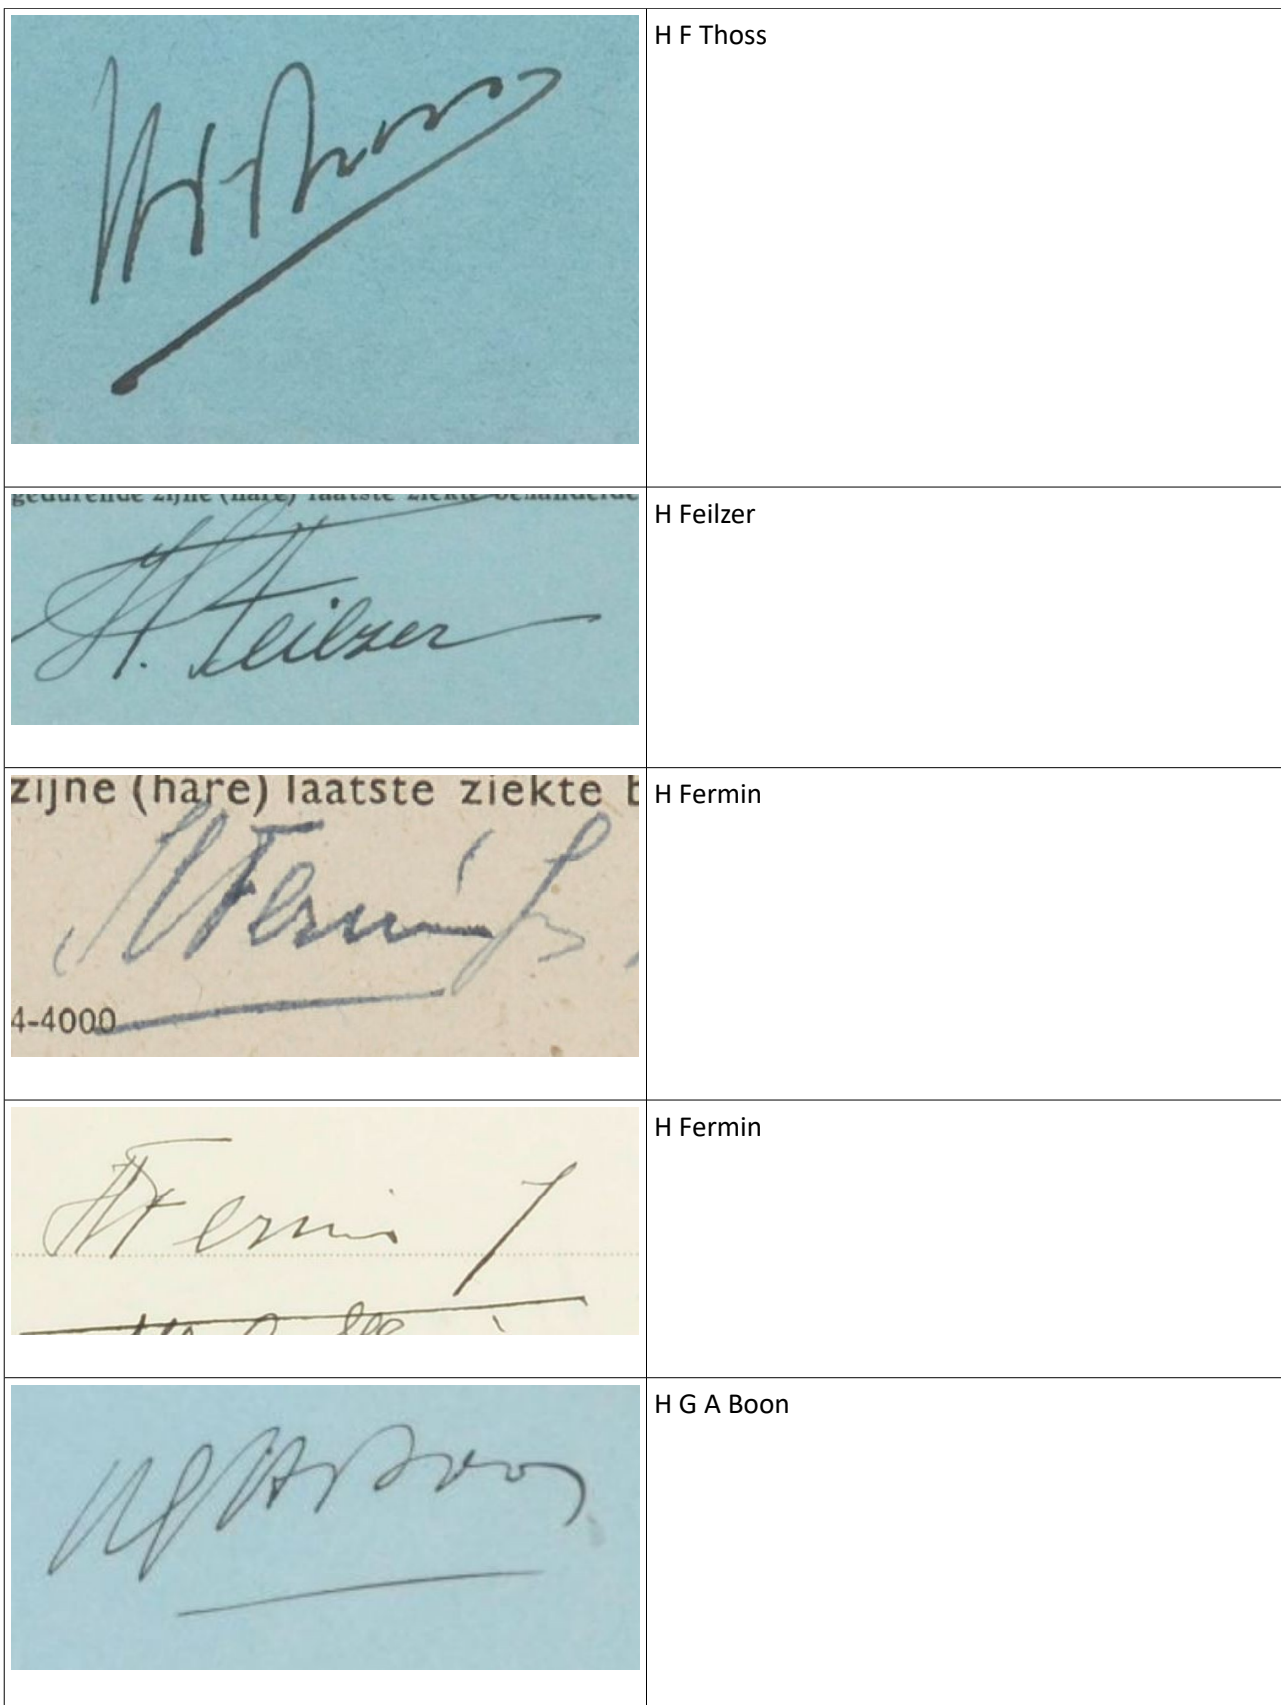 H F Thoss
gedurende zijne (hare) laatste ziekte behandelde
H. Feilzer
H Feilzer
zijne (hare) laatste ziekte b
H Fermin
HFermin
4-4000
HFermin
H Fermin
HGABoon
H G A Boon